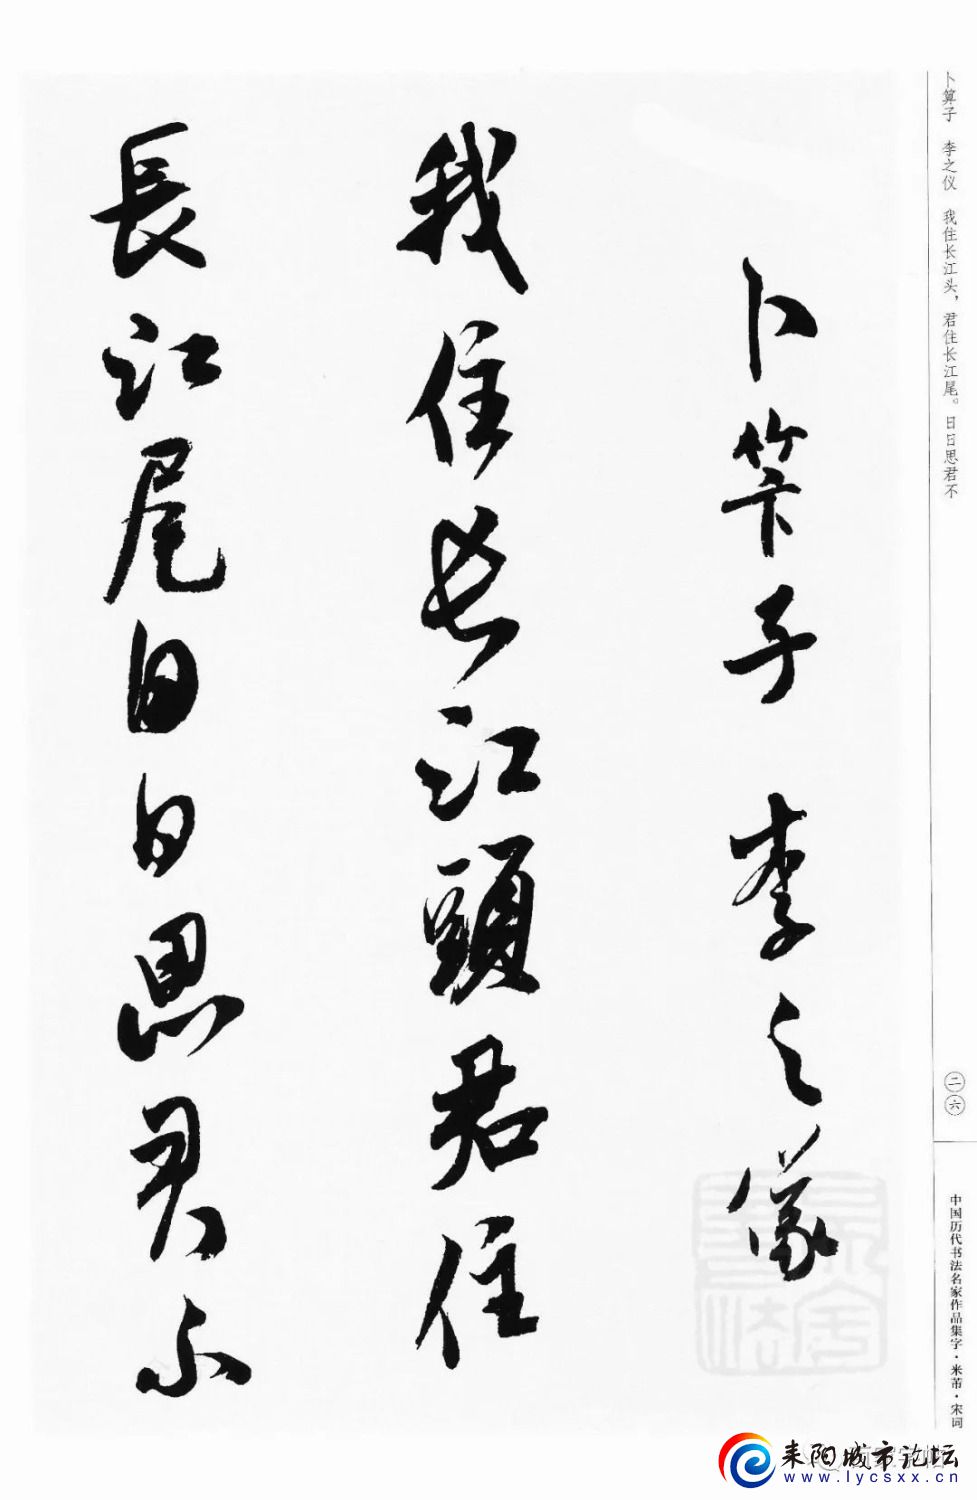 卜算子 李之仪 我住长江头，君住长江尾。日日思君不
卜筭子李之儀
我住长江頭君住
長江尾日日思君不
二六
中国历代书法名家作品集字·米芾·宋词
耒阳城市论坛
www.lycsxx.cn